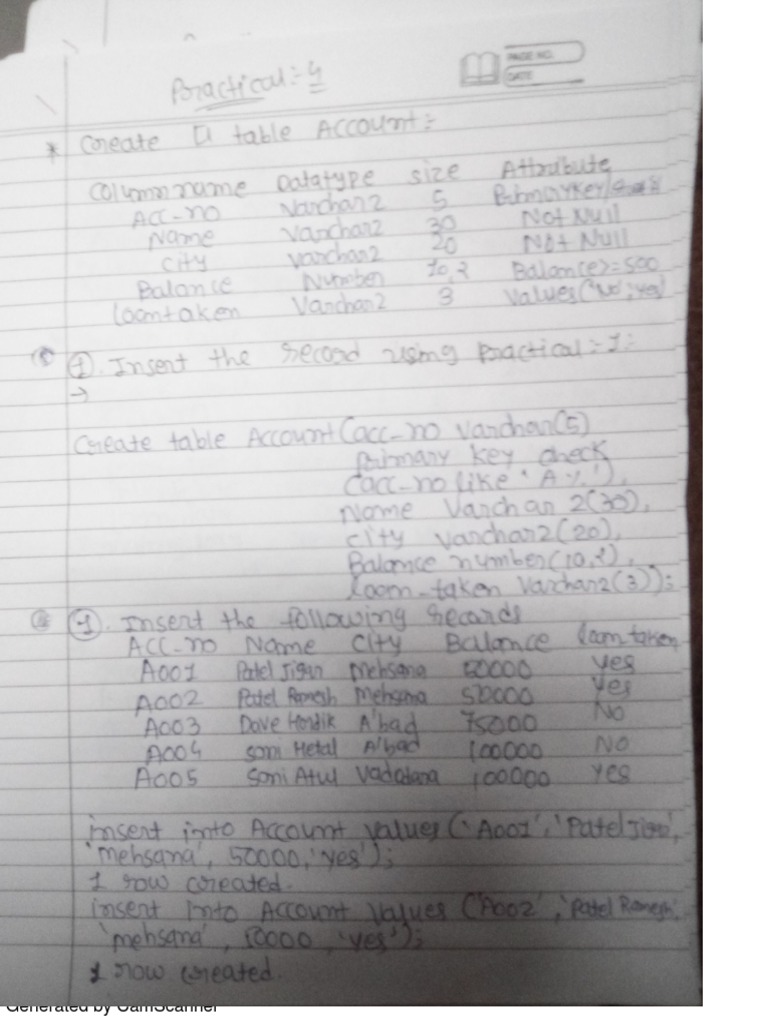 Practical:- 4
PAGE NO.
DATE
* Create a table Account:-
Column name Datatype size Attribute
Acc-no Varchar2 5 Primary key/
Name Varchar2 30 Not Null
City Varchar2 20 Not Null
Balance Number 10,2 Balance>=500
loantaken Varchar2 3 Values(No,yes)
①. Insert the record using Practical:-1:-
→
Create table Account(acc-no varchar(5)
primary key check
(acc-no like 'A%'),
Name Varchar2(30),
city varchar2(20),
Balance number(10,2),
loan-taken varchar2(3));
①. Insert the following records
Acc-no Name City Balance loan taken
A001 Patel Jigar Mehsana 50000 yes
A002 Patel Ramesh Mehsana 50000 yes
A003 Dave Hardik A'bad 75000 No
A004 soni Hetal A'bad 100000 NO
A005 Soni Atul Vadodara 100000 yes
insert into Account values ('A001', 'Patel Jigar',
'mehsana', 50000, 'yes');
1 row created.
insert into Account values ('A002', 'Patel Ramesh',
'mehsana', 50000, 'yes');
1 row created.
Generated by CamScanner